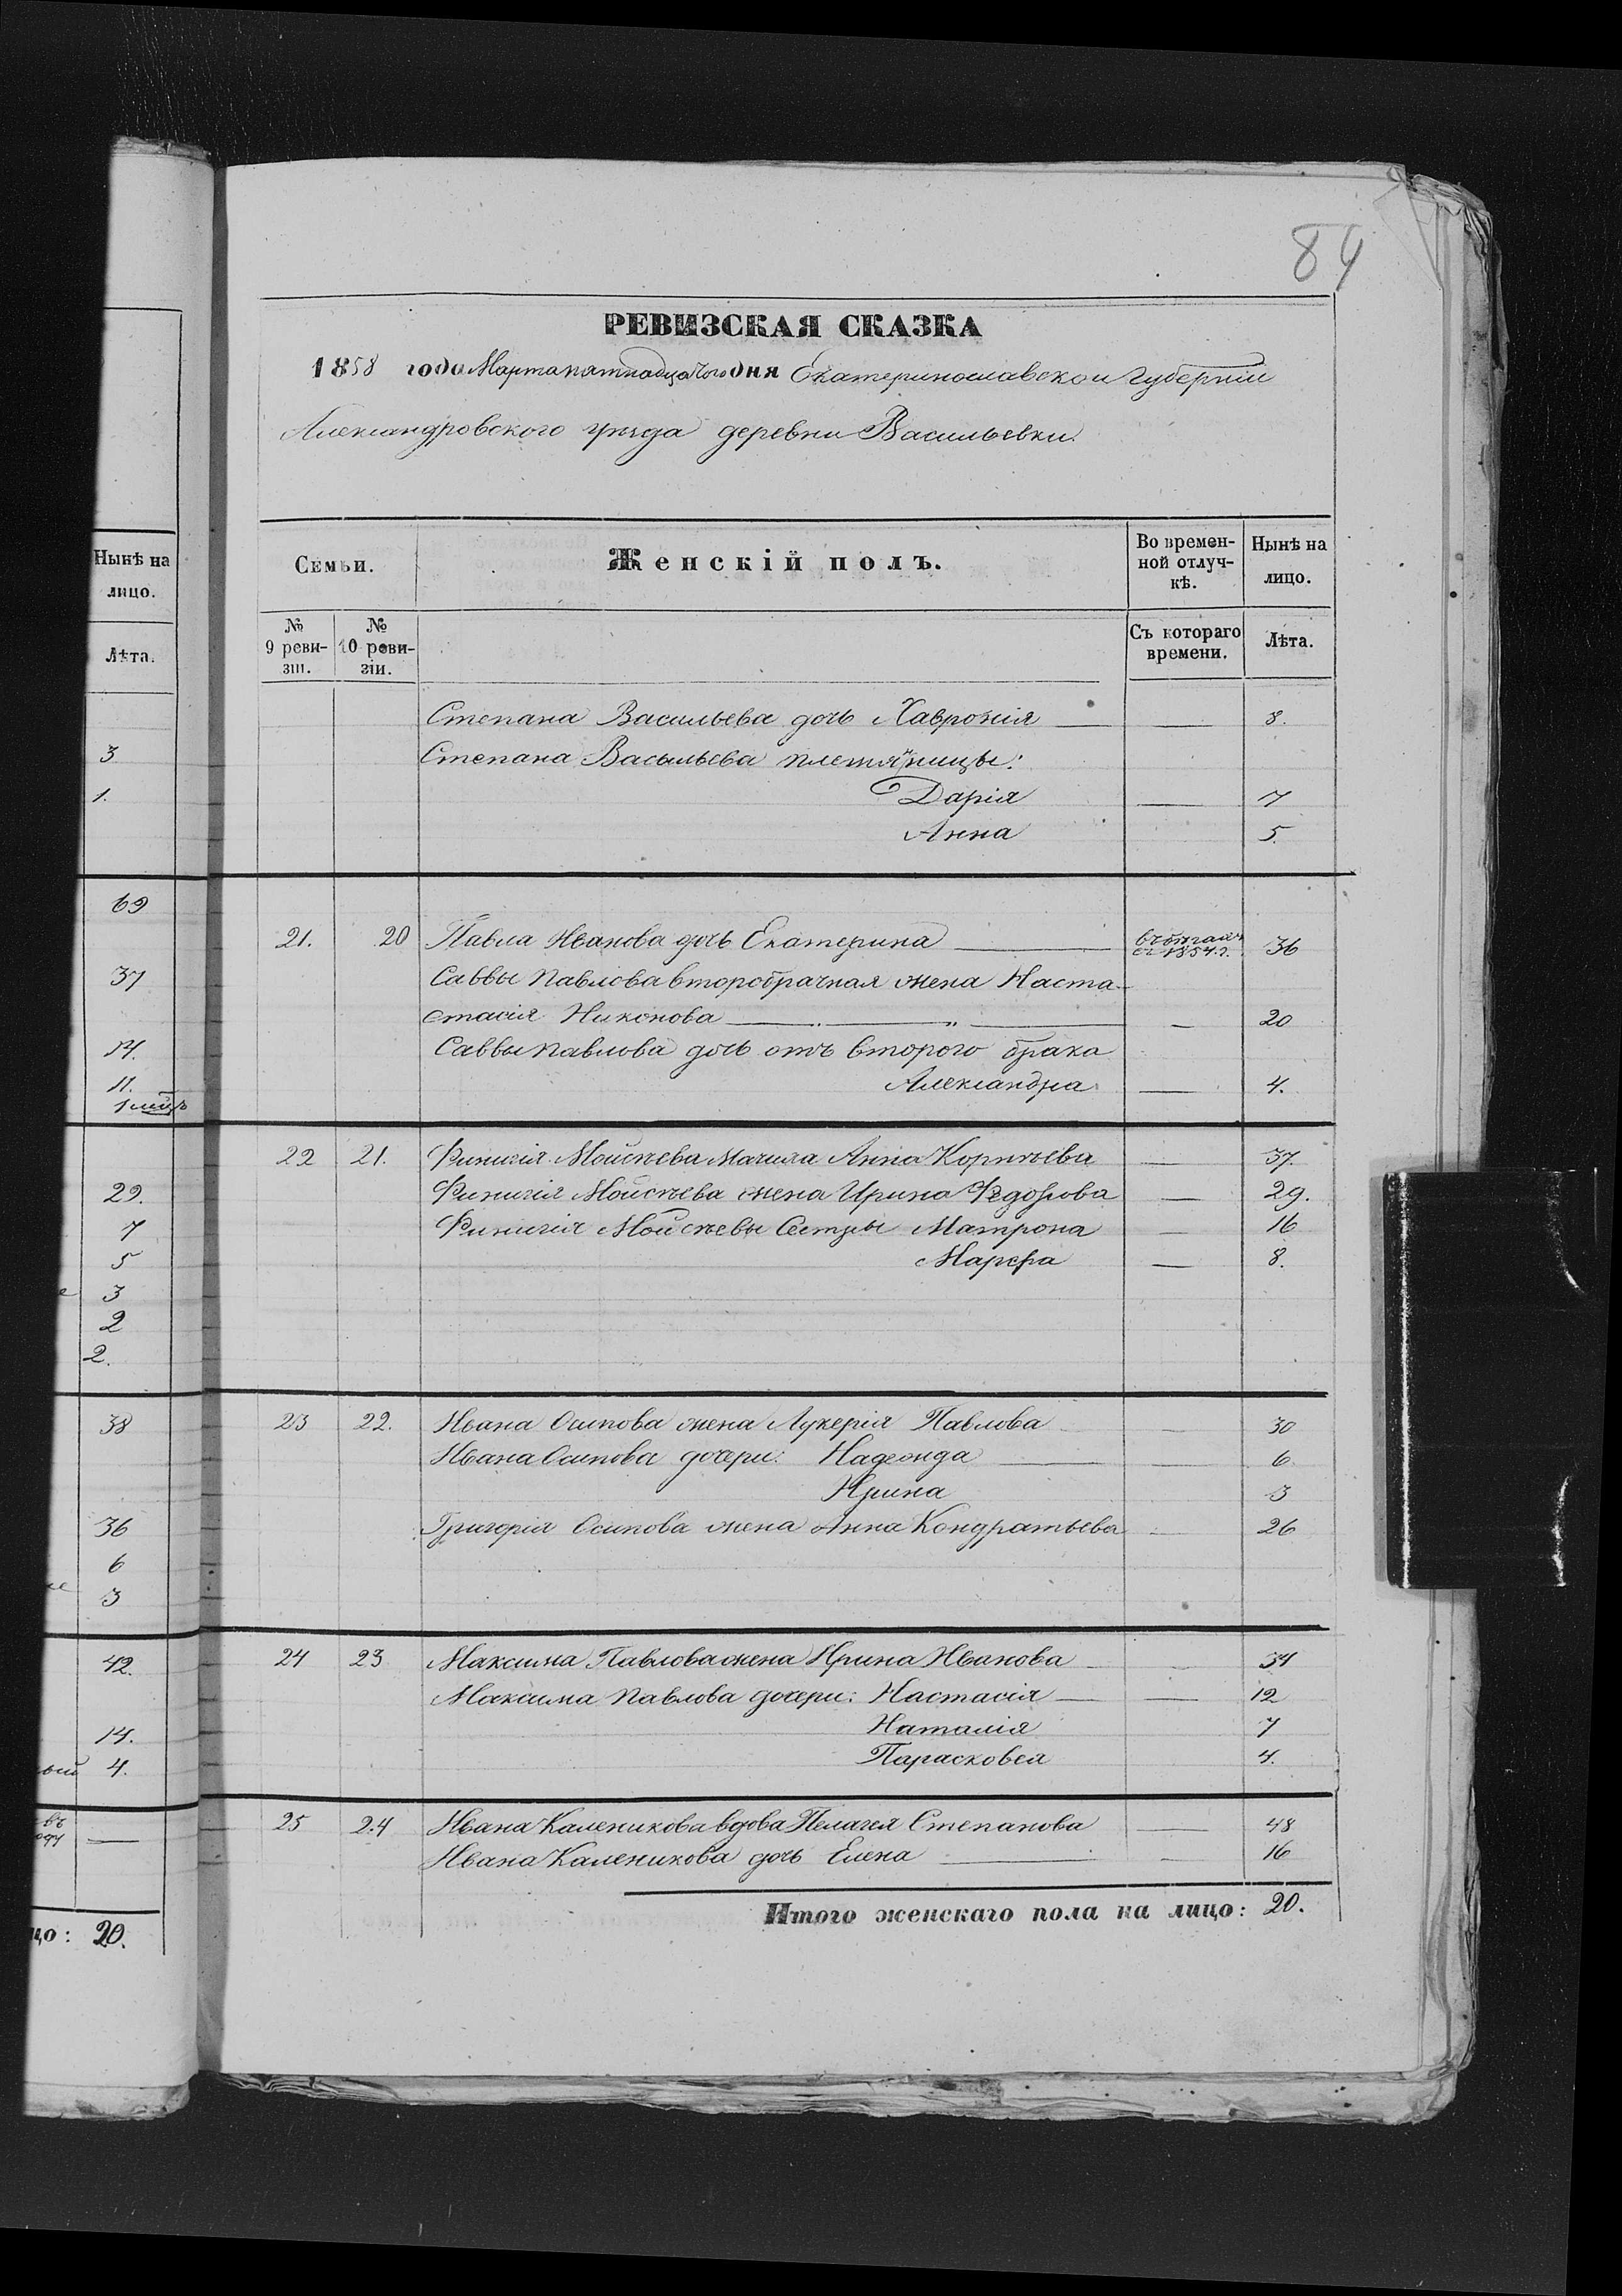 84
РЕВИЗСКАЯ СКАЗКА
1858 года Марта пятнадцатого дня Екатеринославской Губерніи
Александровского уѣзда деревни Васильевки.
Нынѣ на лицо.
Лѣта.
3
1.
69
37
14.
11.
29.
7
5
3
2
2.
38
36
6
3
42.
14.
4.
въ
—
цо: 20.
Семьи.
Женскій полъ.
Во времен-
ной отлуч-
кѣ.
Нынѣ на
лицо.
№
9 реви-
зіи.
№
10 реви-
зіи.
Съ котораго
времени.
Лѣта.
Степана Васильева дочь Хавронія — — 8.
Степана Васильева племянницы:
Дарія — 7
Анна 5.
21. 20 Павла Иванова дочь Екатерина — въ бѣгахъ съ 1854 г. 36
Саввы Павлова второбрачная жена Наста-
стасія Никонова — — 20
Саввы Павлова дочь отъ второго брака
Александра — 4.
22 21. Моисѣева Мачиха Анна Корнѣева — 37.
Моисѣева жена Ирина Федорова — 29.
Моисѣевы Сестры Матрона — 16
Марфа — 8.
23 22. Ивана Осипова жена Лукерія Павлова — 30
Ивана Осипова дочери: Надежда — — 6
Ирина 3
Григорія Осипова жена Анна Кондратьева — 26
24 23 Максима Павлова жена Ирина Иванова — 34
Максима Павлова дочери: Настасія — — 12
Наталія 7
Парасковея 4.
25 24 Ивана Каленикова вдова Пелагея Степанова — 48
Ивана Каленикова дочь Елена — — 16
Итого женскаго пола на лицо: 20.